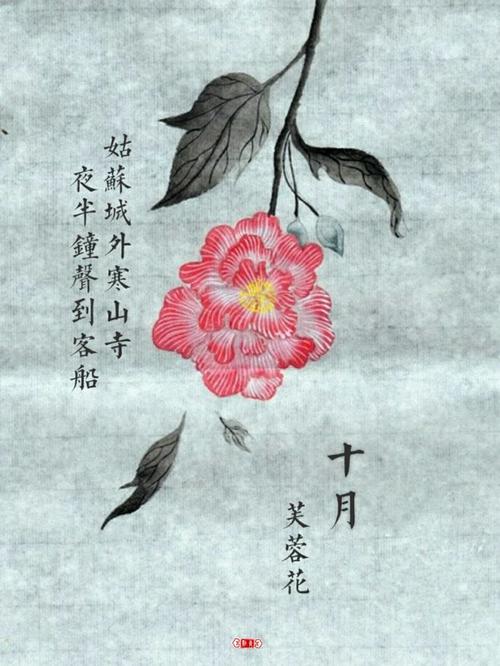 姑蘇城外寒山寺
夜半鐘聲到客船
十月
芙蓉花